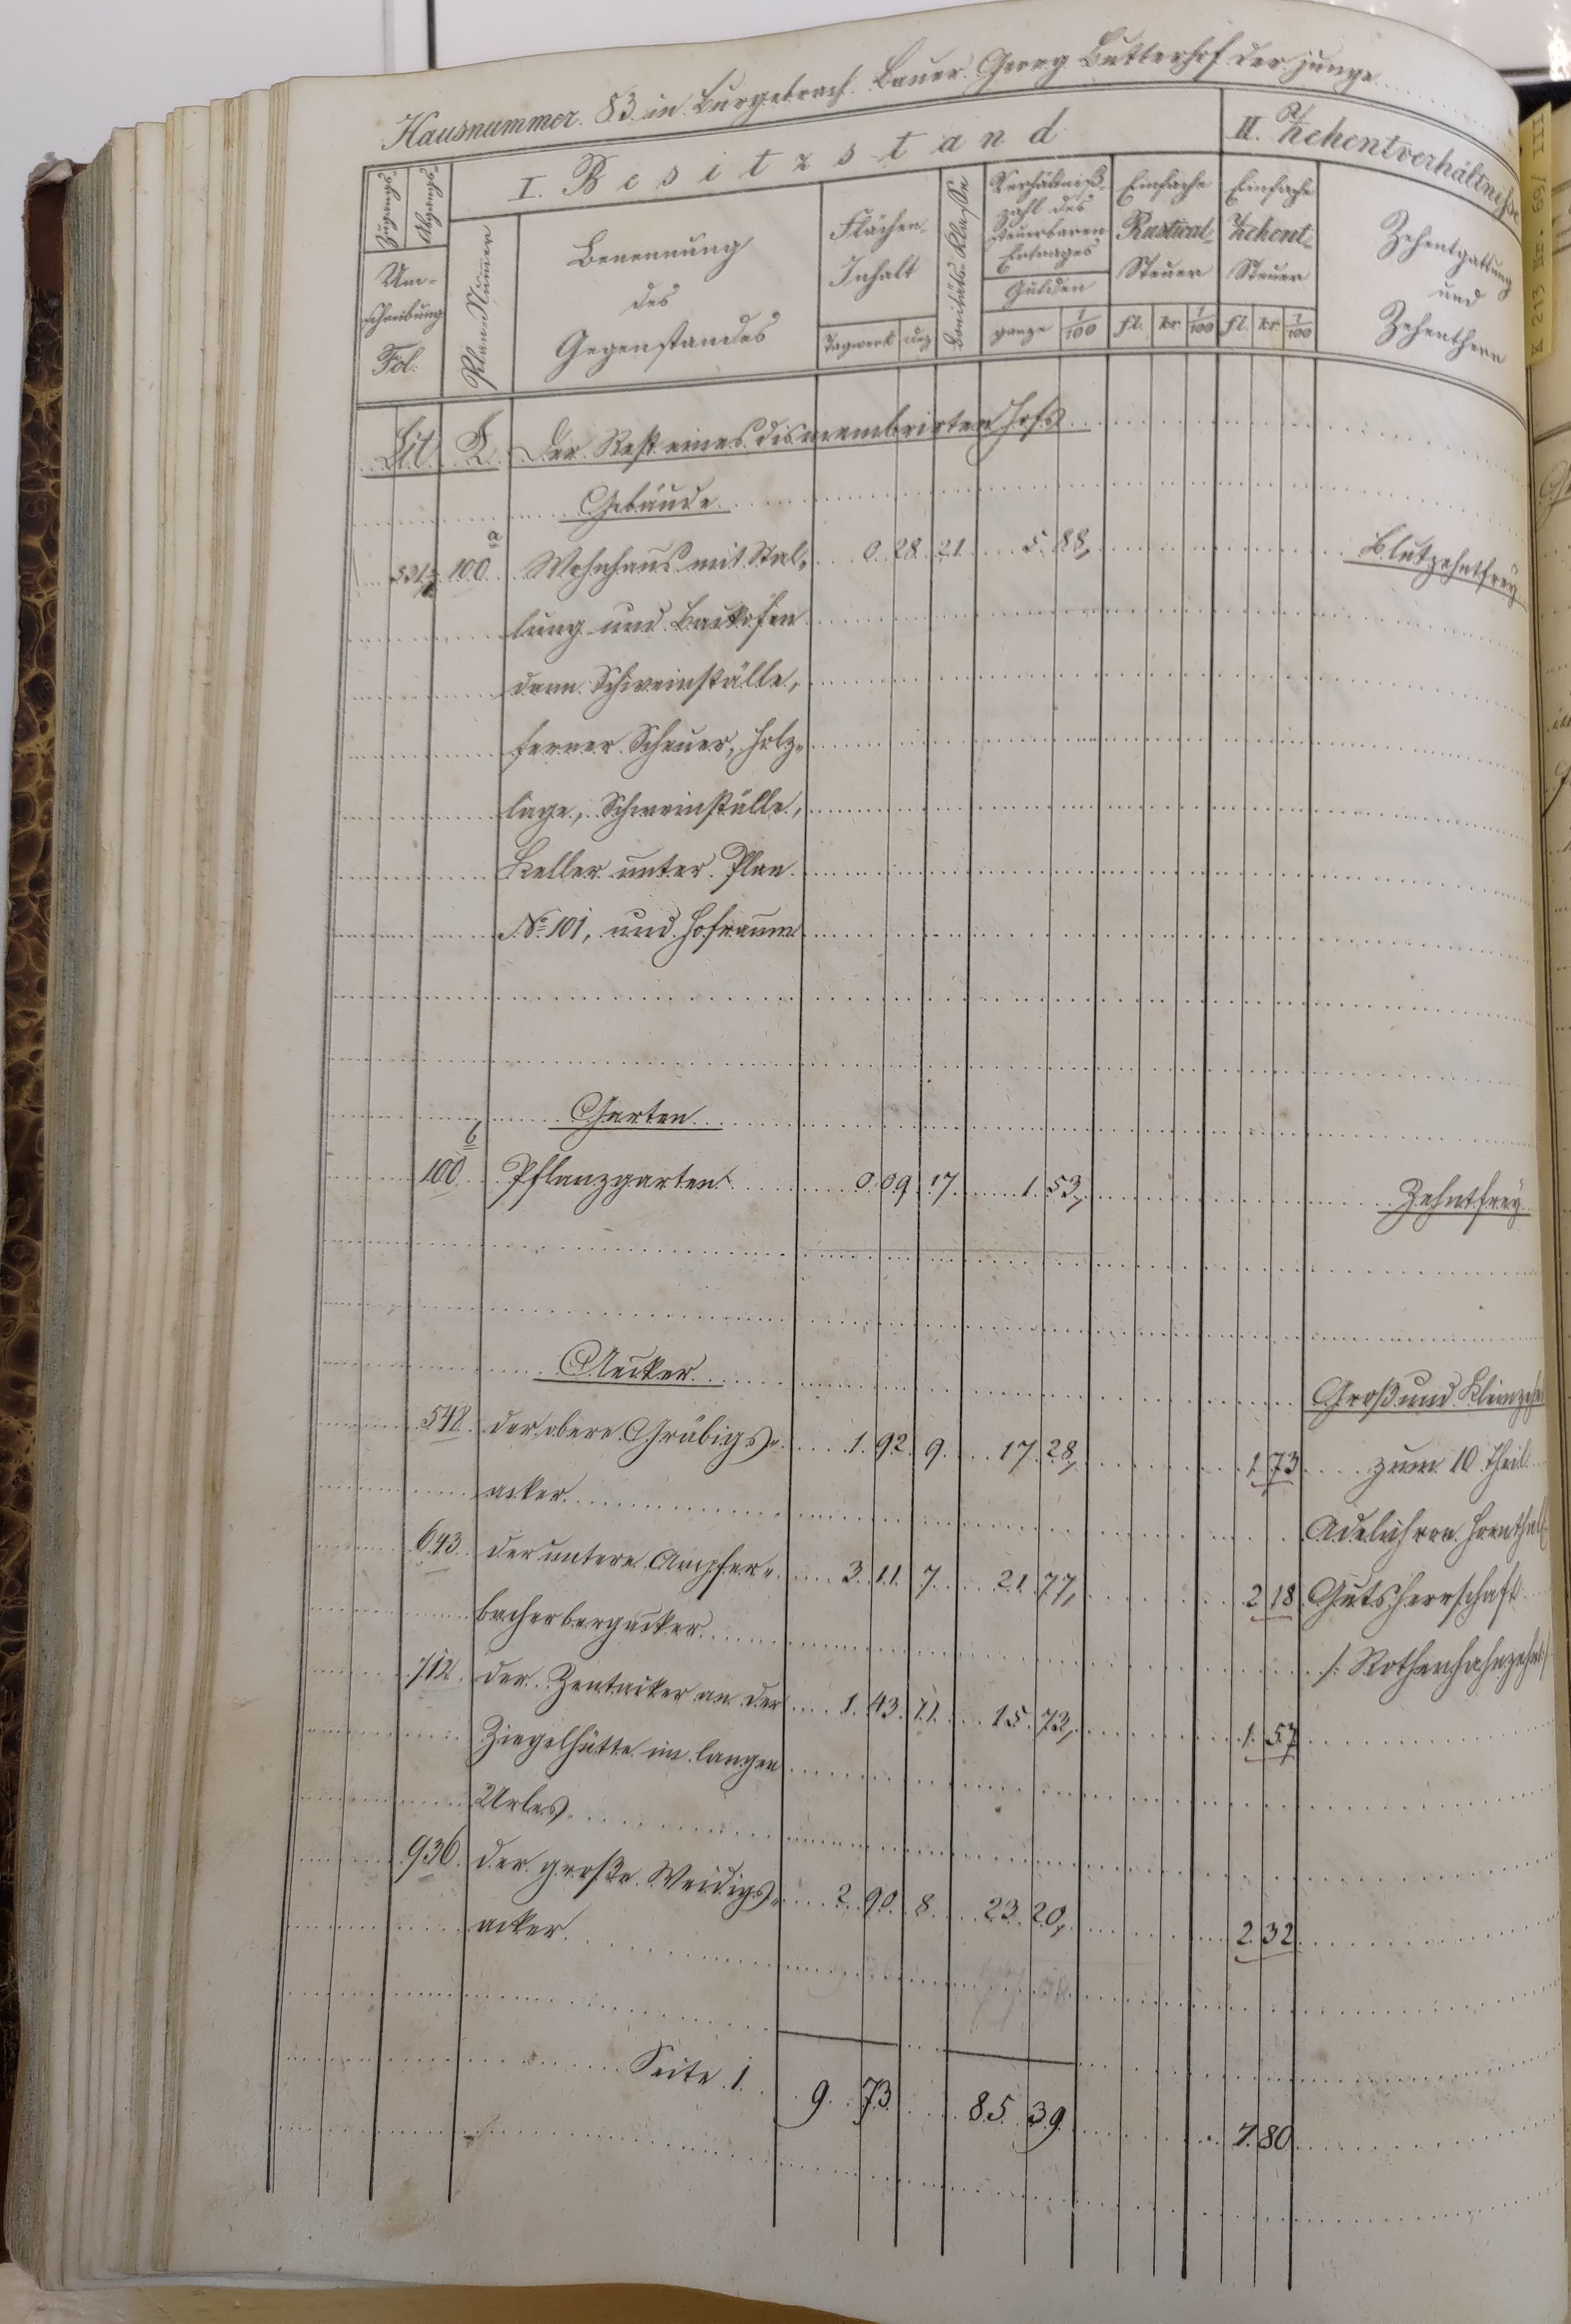 Hausnummer 83 in Burgebrach Bauer Georg Butterhof der junge
I. Besitzstand
II. Zehentverhältniße
Zugangs-
Abgangs-
Um-
schreibung
Fol:
Plan-Nummer
Benennung
des
Gegenstandes
Flächen-
Inhalt
Tagwerk dez
Bonitäts-Klaße
Verhältniß-
zahl des
steuerbaren
Ertrages
Gulden
ganze 1/100
Einfache
Rustical-
Steuer
fl. kr 1/100
Einfache
Zehent-
Steuer
fl. kr 1/100
Zehentgattung
und
Zehentherr
Lit. Der Rest eines dismembrirten Hofs
Gebäude
100 a Wohnhaus mit Stal- 0 28 21 5 88 Blutzehntfrey
lung und Backofen
dann Schweinställe,
ferner Scheuer, Holz-
lage, Schweinställe,
Keller unter Plan
No 101, und Hofraum
Garten
100 b Pflanzgarten 0 09 17 1 53 Zehntfrey
Aecker
Groß und Kleinzehnt
548 der obere Gräbigs- 1 92 9 17 28 1 73 zum 10 Theil
acker
643 der untere Ampfer- 3 11 7 21 77 2 18 Gutsherrschaft
bacherbergacker
/: Rothenhahnzehnt :/
712 der Zentacker an der 1 43 11 15 73 1 57
Ziegelhütte im langen
Urles
936 der große Weidigs- 2 90 8 23 20 2 32
acker
Seite 1 9 73 85 39 7 80
K 213 Nr. 69/ III